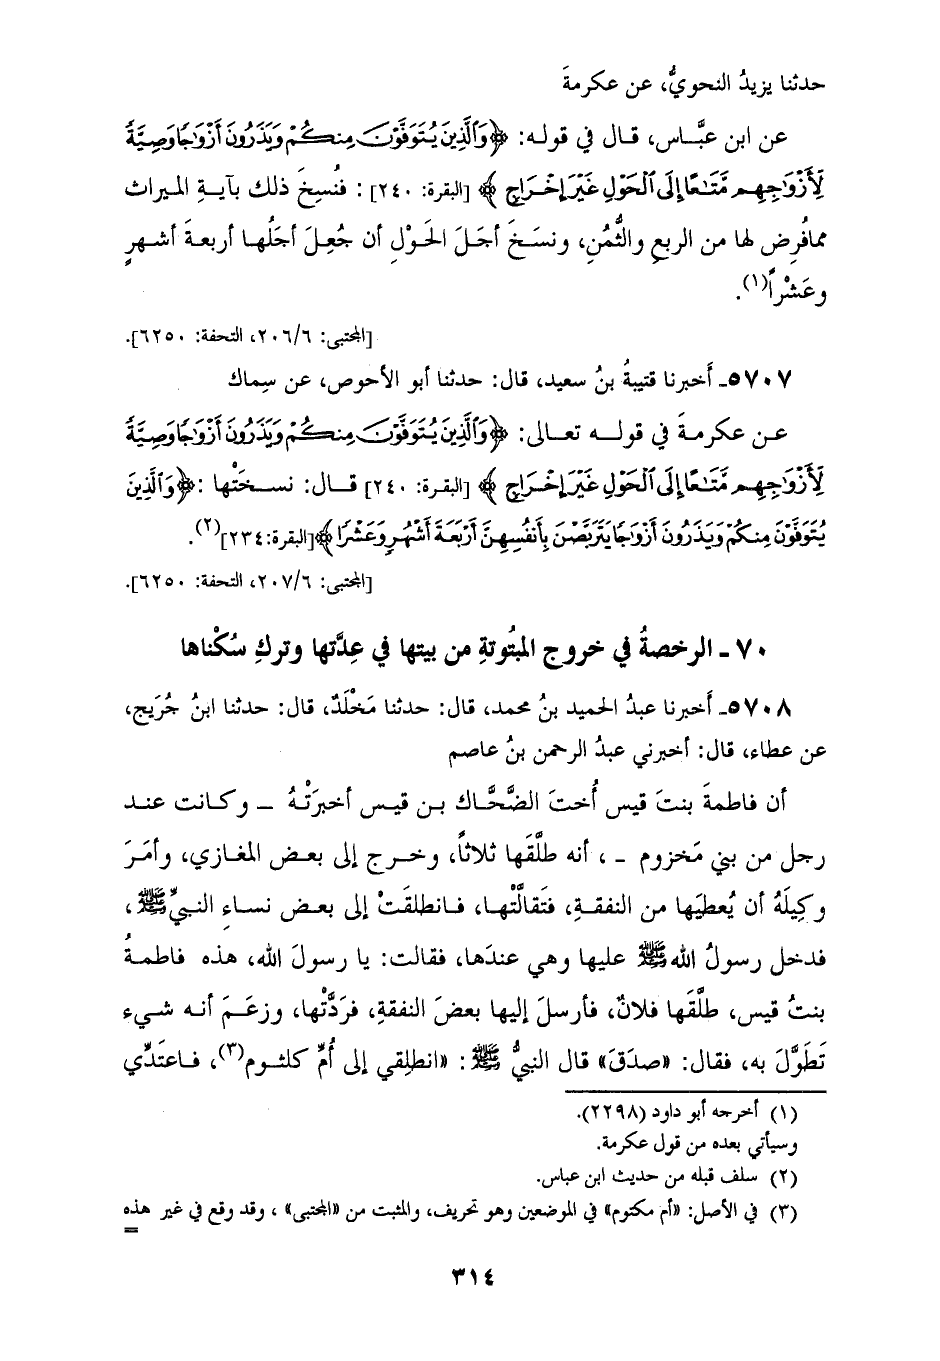 حدثنا يزيدُ النحويُّ، عن عكرمةَ
عن ابن عبَّاس، قال في قوله: ﴿وَٱلَّذِينَ يُتَوَفَّوْنَ مِنكُمْ وَيَذَرُونَ أَزْوَٰجًا وَصِيَّةً
لِّأَزْوَٰجِهِم مَّتَٰعًا إِلَى ٱلْحَوْلِ غَيْرَ إِخْرَاجٍ﴾ [البقرة: ٢٤٠] : فنُسِخَ ذلك بآيةِ الميراث
مما فُرِض لها من الربعِ والثُّمُنِ، ونسَخَ أجَلَ الحَوْلِ أن جُعِلَ أجَلُها أربعةَ أشهرٍ
وعَشْراً(١).
[المجتبى: ٢٠٦/٦، التحفة: ٦٢٥٠].
٥٧٠٧ـ أَخبرنا قتيبةُ بنُ سعيد، قال: حدثنا أبو الأحوص، عن سِماك
عن عكرمةَ في قوله تعالى: ﴿وَٱلَّذِينَ يُتَوَفَّوْنَ مِنكُمْ وَيَذَرُونَ أَزْوَٰجًا وَصِيَّةً
لِّأَزْوَٰجِهِم مَّتَٰعًا إِلَى ٱلْحَوْلِ غَيْرَ إِخْرَاجٍ﴾ [البقرة: ٢٤٠] قال: نسختْها :﴿وَٱلَّذِينَ
يُتَوَفَّوْنَ مِنكُمْ وَيَذَرُونَ أَزْوَٰجًا يَتَرَبَّصْنَ بِأَنفُسِهِنَّ أَرْبَعَةَ أَشْهُرٍ وَعَشْرًا﴾[البقرة: ٢٣٤](٢).
[المجتبى: ٢٠٧/٦، التحفة: ٦٢٥٠].
٧٠ ـ الرخصةُ في خروج المبتُوتةِ من بيتها في عِدَّتها وتركِ سُكْناها
٥٧٠٨ـ أَخبرنا عبدُ الحميد بنُ محمد، قال: حدثنا مَخْلَدٌ، قال: حدثنا ابنُ جُرَيج،
عن عطاء، قال: أخبرني عبدُ الرحمن بنُ عاصم
أن فاطمةَ بنتَ قيس أُختَ الضَّحَّاك بن قيس أخبرَتْهُ ـ وكانت عند
رجل من بني مَخزوم ـ ، أنه طلَّقَها ثلاثاً، وخرج إلى بعض المغازي، وأمَرَ
وكِيلَهُ أن يُعطيَها من النفقةِ، فتَقالَّتْها، فانطلقَتْ إلى بعض نساءِ النبيِّ ﷺ،
فدخل رسولُ الله ﷺ عليها وهي عندَها، فقالت: يا رسولَ الله، هذه فاطمةُ
بنتُ قيس، طلَّقَها فلانٌ، فأرسلَ إليها بعضَ النفقةِ، فرَدَّتْها، وزعَمَ أنه شيء
تَطَوَّلَ به، فقال: «صدَقَ» قال النبيُّ ﷺ: «انطلِقي إلى أُمِّ كلثوم(٣)، فاعتَدِّي
(١) أخرجه أبو داود (٢٢٩٨).
وسيأتي بعده من قول عكرمة.
(٢) سلف قبله من حديث ابن عباس.
(٣) في الأصل: «أم مكتوم» في الموضعين وهو تحريف، والمثبت من «المجتبى» ، وقد وقع في غير هذه
=
٣١٤